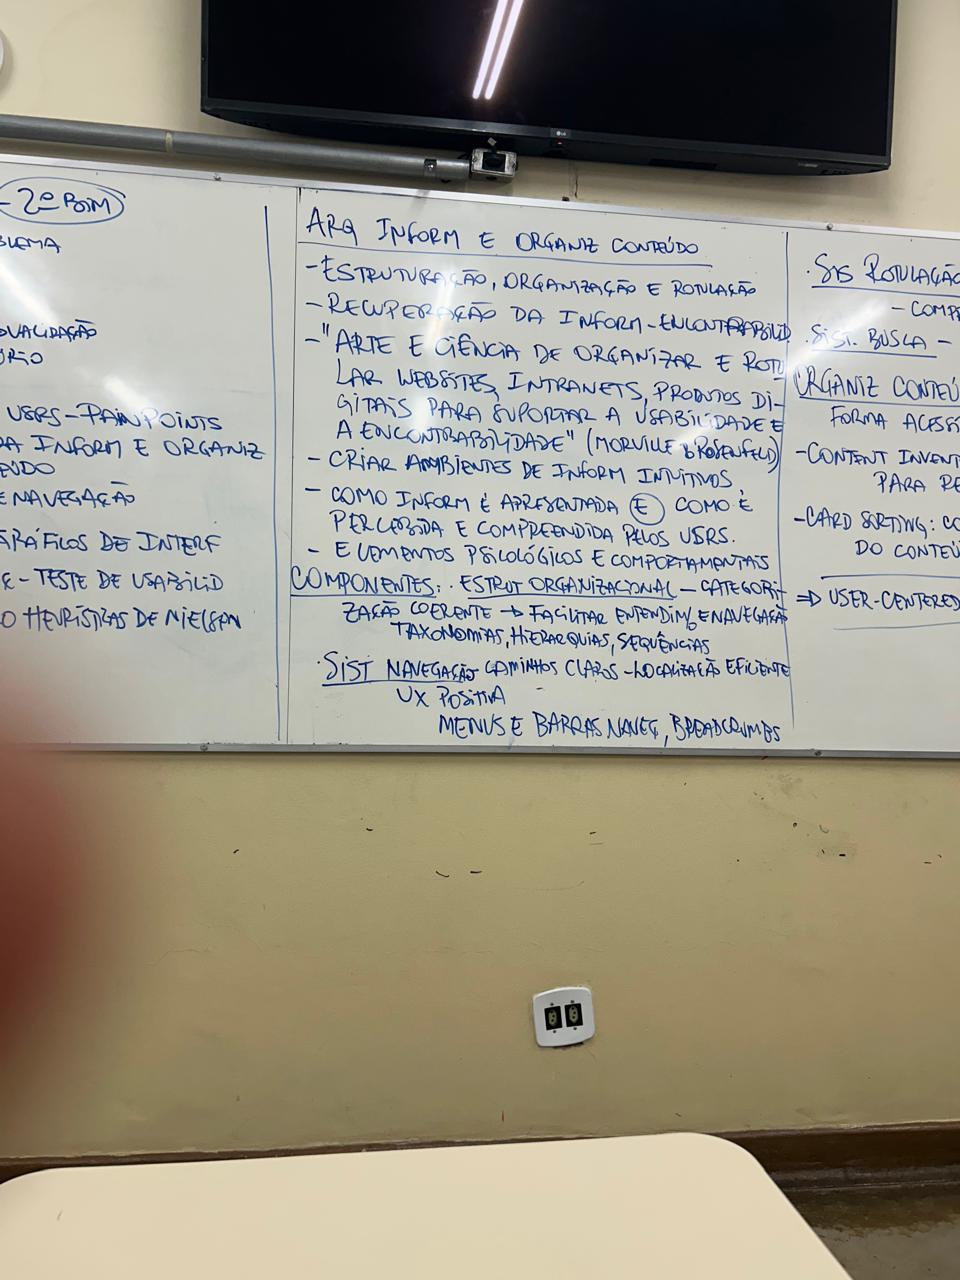 - 2º BIM
BLEMA
USRS - PAINPOINTS
DA INFORM E ORGANIZ
E NAVEGAÇÃO
GRÁFICOS DE INTERF
E - TESTE DE USABILID
O HEURÍSTICAS DE NIELSEN
ARQ INFORM E ORGANIZ CONTEÚDO
- ESTRUTURAÇÃO, ORGANIZAÇÃO E ROTULAÇÃO
- RECUPERAÇÃO DA INFORM - ENCONTRABILID
- "ARTE E CIÊNCIA DE ORGANIZAR E ROTU
LAR WEBSITES, INTRANETS, PRODUTOS DI-
GITAIS PARA SUPORTAR A USABILIDADE E
A ENCONTRABILIDADE" (MORVILLE & ROSENFELD)
- CRIAR AMBIENTES DE INFORM INTUITIVOS
- COMO INFORM É APRESENTADA E COMO É
PERCEBIDA E COMPREENDIDA PELOS USRS.
- ELEMENTOS PSICOLÓGICOS E COMPORTAMENTAIS
COMPONENTES: · ESTRUT ORGANIZACIONAL - CATEGORI-
ZAÇÃO COERENTE → FACILITAR ENTENDIM/ E NAVEGAÇÃO
TAXONOMIAS, HIERARQUIAS, SEQUÊNCIAS
· SIST NAVEGAÇÃO CAMINHOS CLAROS - LOCALIZAÇÃO EFICIENTE
UX POSITIVA
MENUS E BARRAS NAVEG, BREADCRUMBS
· SIS ROTULAÇÃO
- COMPR
· SIST. BUSCA -
ORGANIZ CONTEÚ
FORMA ACESS
- CONTENT INVENT
PARA RE
- CARD SORTING: CO
DO CONTEÚ
⇒ USER-CENTERED
LG